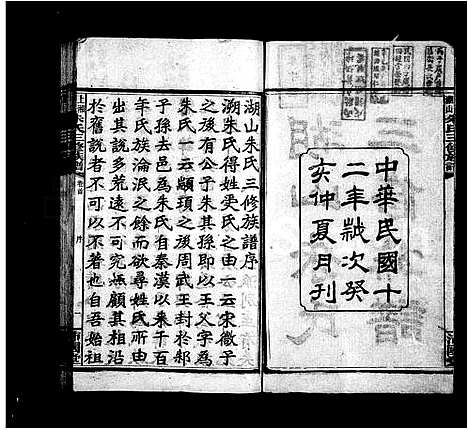 中華民國十
二年歲次癸
亥仲夏月刊
湖山朱氏三修族譜序
溯朱氏得姓受氏之由一云宋微子
之後有公子朱其孫即以王父字為
朱氏一云顓頊之後周武王封於邾
子孫去邑為朱氏自秦漢以來千百
年氏族淪泯之餘而欲尋姓氏所由
出其說多荒遠不可究無顧其相沿
於舊說者不可以不知也自吾始祖
卷首
序